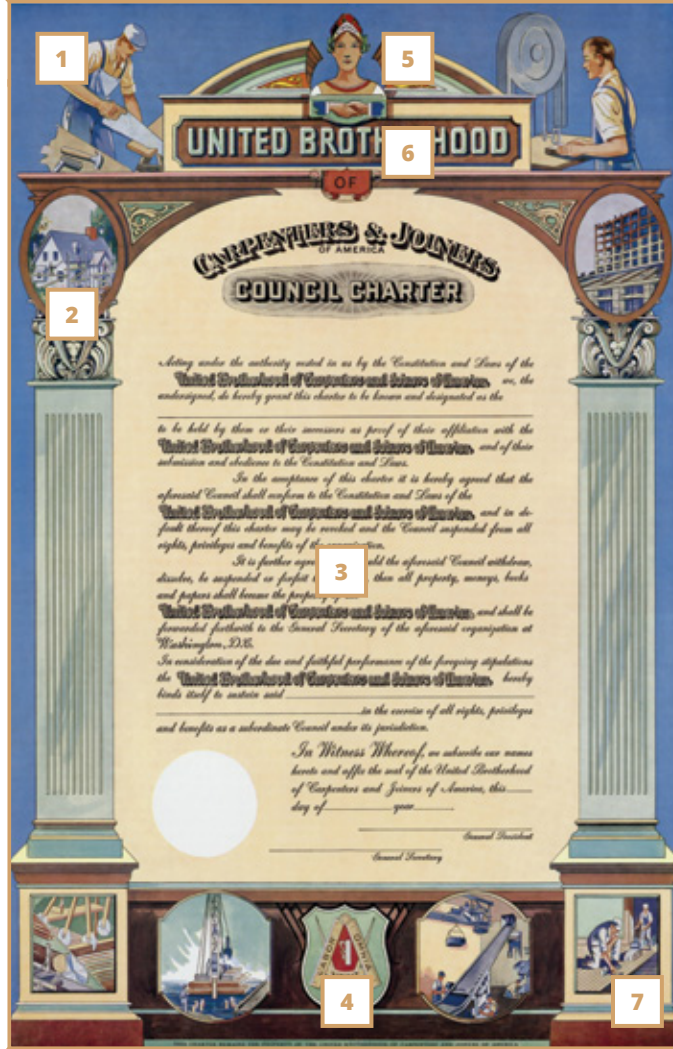 1
5
UNITED BROTHHOOD
6
OF
CARPENTERS & JOINERS
OF AMERICA
COUNCIL CHARTER
2
Acting under the authority vested in us by the Constitution and Laws of the
United Brotherhood of Carpenters and Joiners of America, we, the
undersigned, do hereby grant this charter to be known and designated as the
to be held by them or their successors as proof of their affiliation with the
United Brotherhood of Carpenters and Joiners of America, and of their
submission and obedience to the Constitution and Laws.
In the acceptance of this charter it is hereby agreed that the
aforesaid Council shall conform to the Constitution and Laws of the
United Brotherhood of Carpenters and Joiners of America, and in de-
fault thereof this charter may be revoked and the Council suspended from all
rights, privileges and benefits of the organization.
It is further agre uld the aforesaid Council withdraw,
3
dissolve, be suspended or forfeit then all property, moneys, books
and papers shall become the property of the
United Brotherhood of Carpenters and Joiners of America, and shall be
forwarded forthwith to the General Secretary of the aforesaid organization at
Washington, D.C.
In consideration of the due and faithful performance of the foregoing stipulations
the United Brotherhood of Carpenters and Joiners of America, hereby
binds itself to sustain said
in the exercise of all rights, privileges
and benefits as a subordinate Council under its jurisdiction.
In Witness Whereof, we subscribe our names
hereto and affix the seal of the United Brotherhood
of Carpenters and Joiners of America, this
day of year
General President
General Secretary
LABOR OMNIA
4
7
THIS CHARTER REMAINS THE PROPERTY OF THE UNITED BROTHERHOOD OF CARPENTERS AND JOINERS OF AMERICA